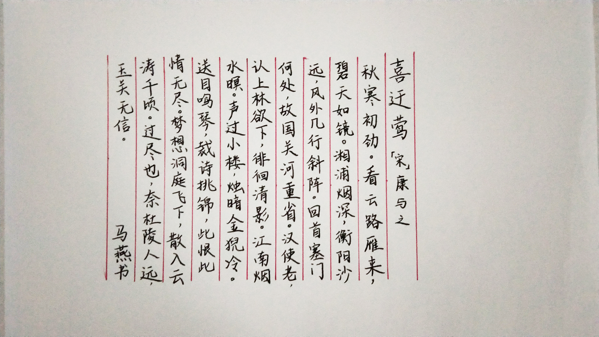 喜迁莺「宋康与之
秋寒初劲。看云路雁来，
碧天如镜。湘浦烟深，衡阳沙
远，风外几行斜阵。回首塞门
何处，故国关河重省。汉使老，
认上林欲下，徘徊清影。江南烟
水暝。声过小楼，烛暗金猊冷。
送目鸣琴，裁诗挑锦，此恨此
情无尽。梦想洞庭飞下，散入云
涛千顷。过尽也，奈杜陵人远，
玉关无信。
马燕书